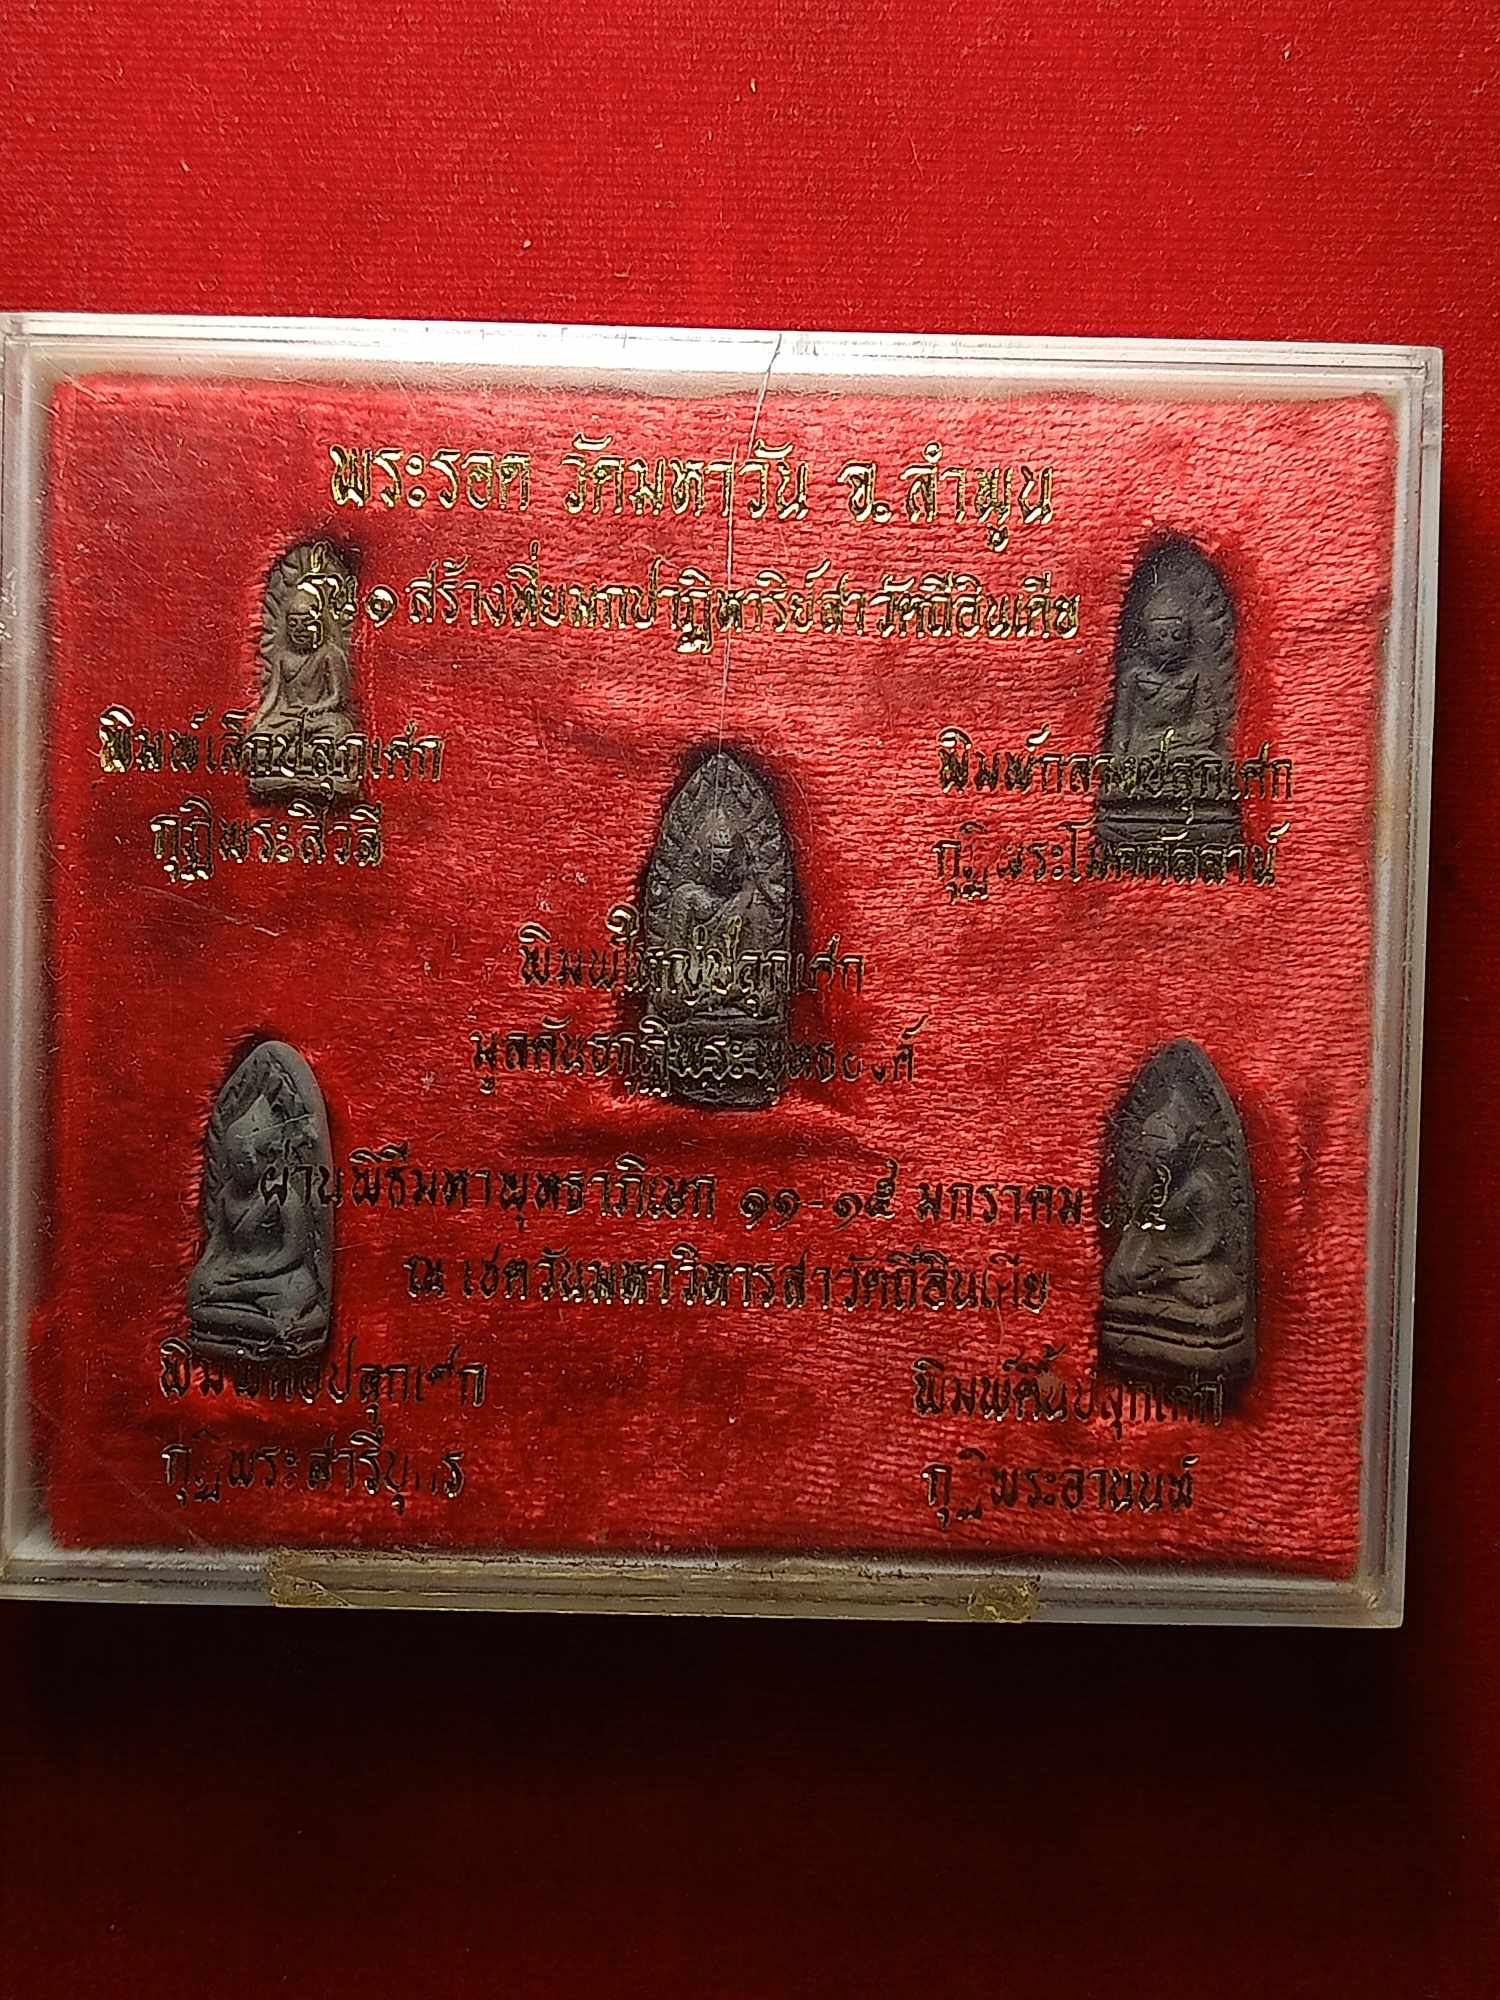 พระรอด วัดมหาวัน จ.ลำพูน
รุ่น ๑ สร้างที่ยมกปาฏิหาริย์สาวัตถีอินเดีย
พิมพ์เล็กปลุกเศก
กุฏิพระสิวลี
พิมพ์กลางปลุกเศก
กุฏิพระโมคคัลลาน์
พิมพ์ใหญ่ปลุกเศก
มูลคันธกุฎีพระพุทธองค์
ผ่านพิธีมหาพุทธาภิเษก ๑๑-๑๕ มกราคม ๓๕
ณ เชตวันมหาวิหารสาวัตถีอินเดีย
พิมพ์ต้อปลุกเศก
กุฏิพระสารีบุตร
พิมพ์ตื้นปลุกเศก
กุฏิพระอานนท์